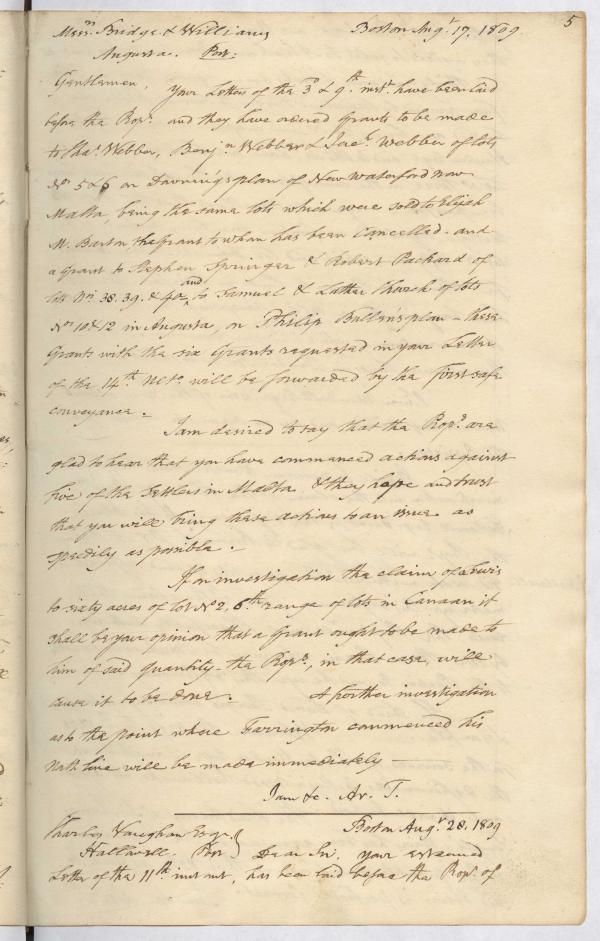 5
Messrs. Bridge & Williams Boston Augt. 17. 1809.
Augusta. Post.
Gentlemen, Your Letters of the 3d & 9th. inst. have been laid
before the Propr. and they have ordered Grants to be made
to Chas. Webber, Benjn. Webber & Webber of lots
Nos 5 & 6 on Downing's plan of New Waterford now
Malta, being the same lots which were sold to Elijah
M. Barton, the Grant to whom has been Cancelled - and
a Grant to Stephen Springer & Robert Packard of
lots Nos. 38. 39. & 40, and to Samuel & Luther Church of lots
Nos 10 & 12 in Augusta, on Philip Bullens plan - these
Grants with the six Grants requested in your Letter
of the 14th. will be forwarded by the first safe
conveyance -
I am desired to say that the Propr. are
glad to hear that you have commenced actions against
five of the Settlers in Malta & they hope and trust
that you will bring these actions to an issue as
speedily as possible.
If on investigation the claim of
to sixty acres of lot No 2, 6th range of lots in Canaan it
shall be your opinion that a Grant ought to be made to
him of said quantity - the Propr., in that case, will
cause it to be done. A further investigation
as to the point where Farrington commenced his
North line will be made immediately -
I am &c. Ar. T.
Charles Vaughan Esqr. Boston Augt. 28. 1809
Hallowell. Post } Dear Sir, Your esteemed
Letter of the 11th inst. has been laid before the Propr. of